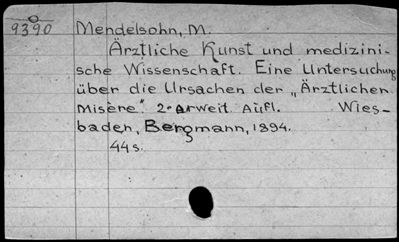 9390 Mendelsohn, M.
Ärztliche Kunst und medizini-
sche Wissenschaft. Eine Untersuchung
über die Ursachen der „Ärztlichen
Misère". 2. erweit Aufl. Wies-
baden, Bergmann, 1894.
44 s.